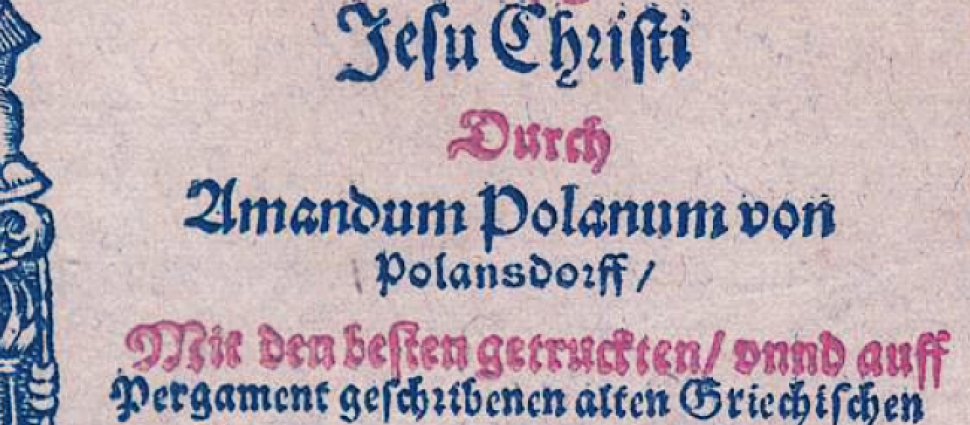 Jesu Christi
Durch
Amandum Polanum von
Polansdorff /
Mit den besten getruckten / vnnd auff
Pergament geschribenen alten Griechischen